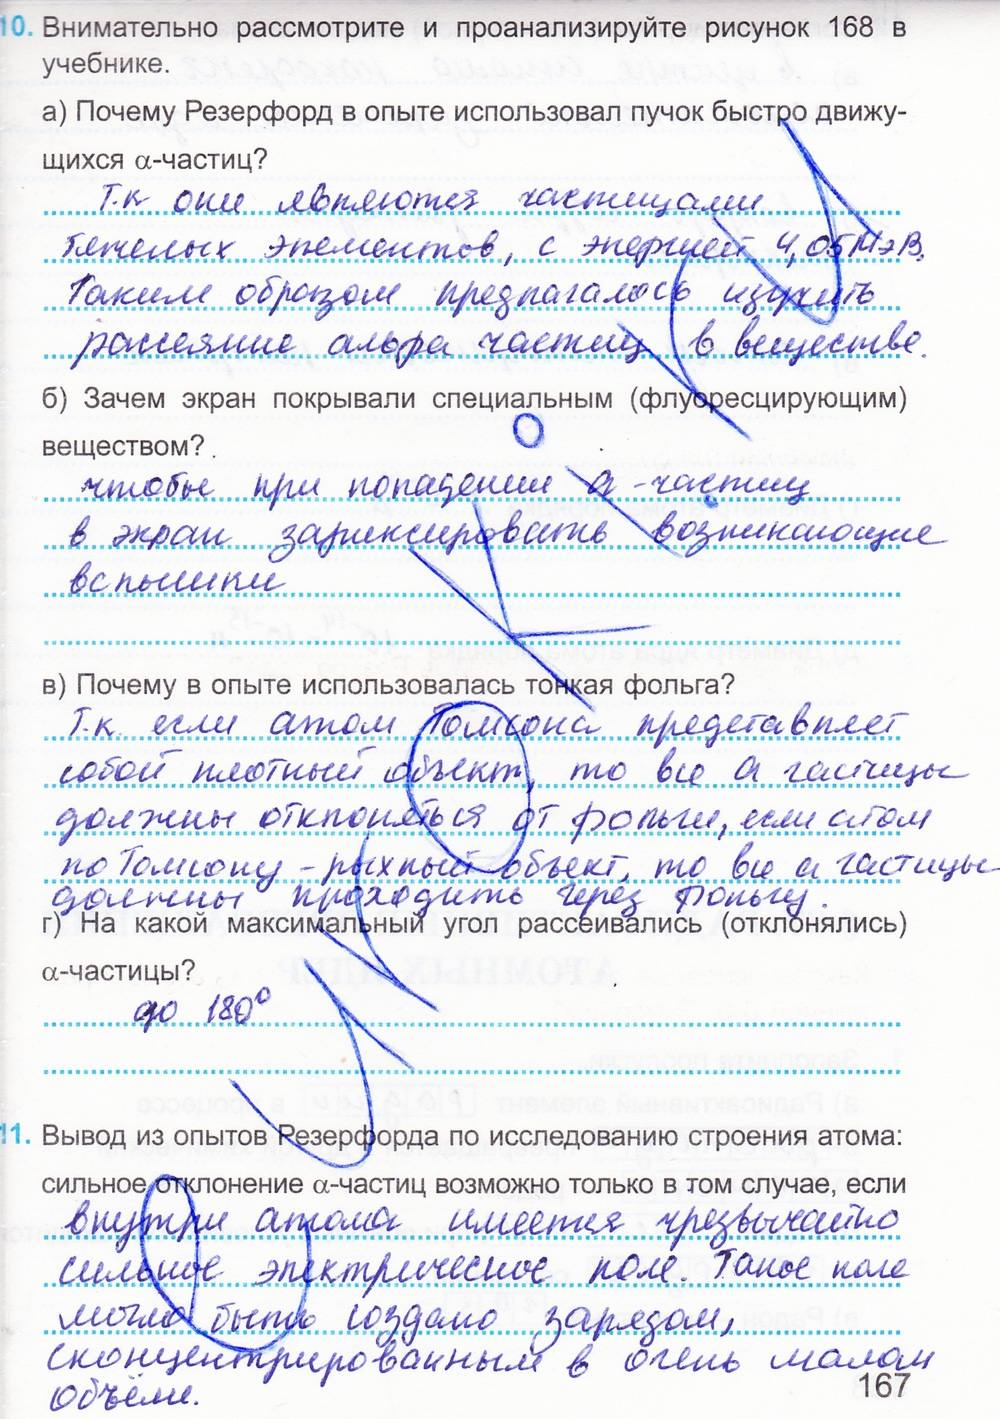 10. Внимательно рассмотрите и проанализируйте рисунок 168 в
учебнике.
а) Почему Резерфорд в опыте использовал пучок быстро движу-
щихся α-частиц?
Т.к они являются частицами
тяжелых элементов, с энергией 4,05 МэВ.
Таким образом предлагалось изучить
рассеяние альфа частиц в веществе.
б) Зачем экран покрывали специальным (флуоресцирующим)
веществом?
чтобы при попадении α-частиц
в экран зафиксировать возникающие
вспышки
в) Почему в опыте использовалась тонкая фольга?
Т.к если атом Томсона представляет
собой плотный объект, то все α частицы
должны отклоняться от фольги, если атом
по Томсону - рыхлый объект, то все α частицы
должны проходить через фольгу.
г) На какой максимальный угол рассеивались (отклонялись)
α-частицы?
до 180°
11. Вывод из опытов Резерфорда по исследованию строения атома:
сильное отклонение α-частиц возможно только в том случае, если
внутри атома имеется чрезвычайно
сильное электрическое поле. Такое поле
могло быть создано зарядом,
сконцентрированным в очень малом
объёме.
167